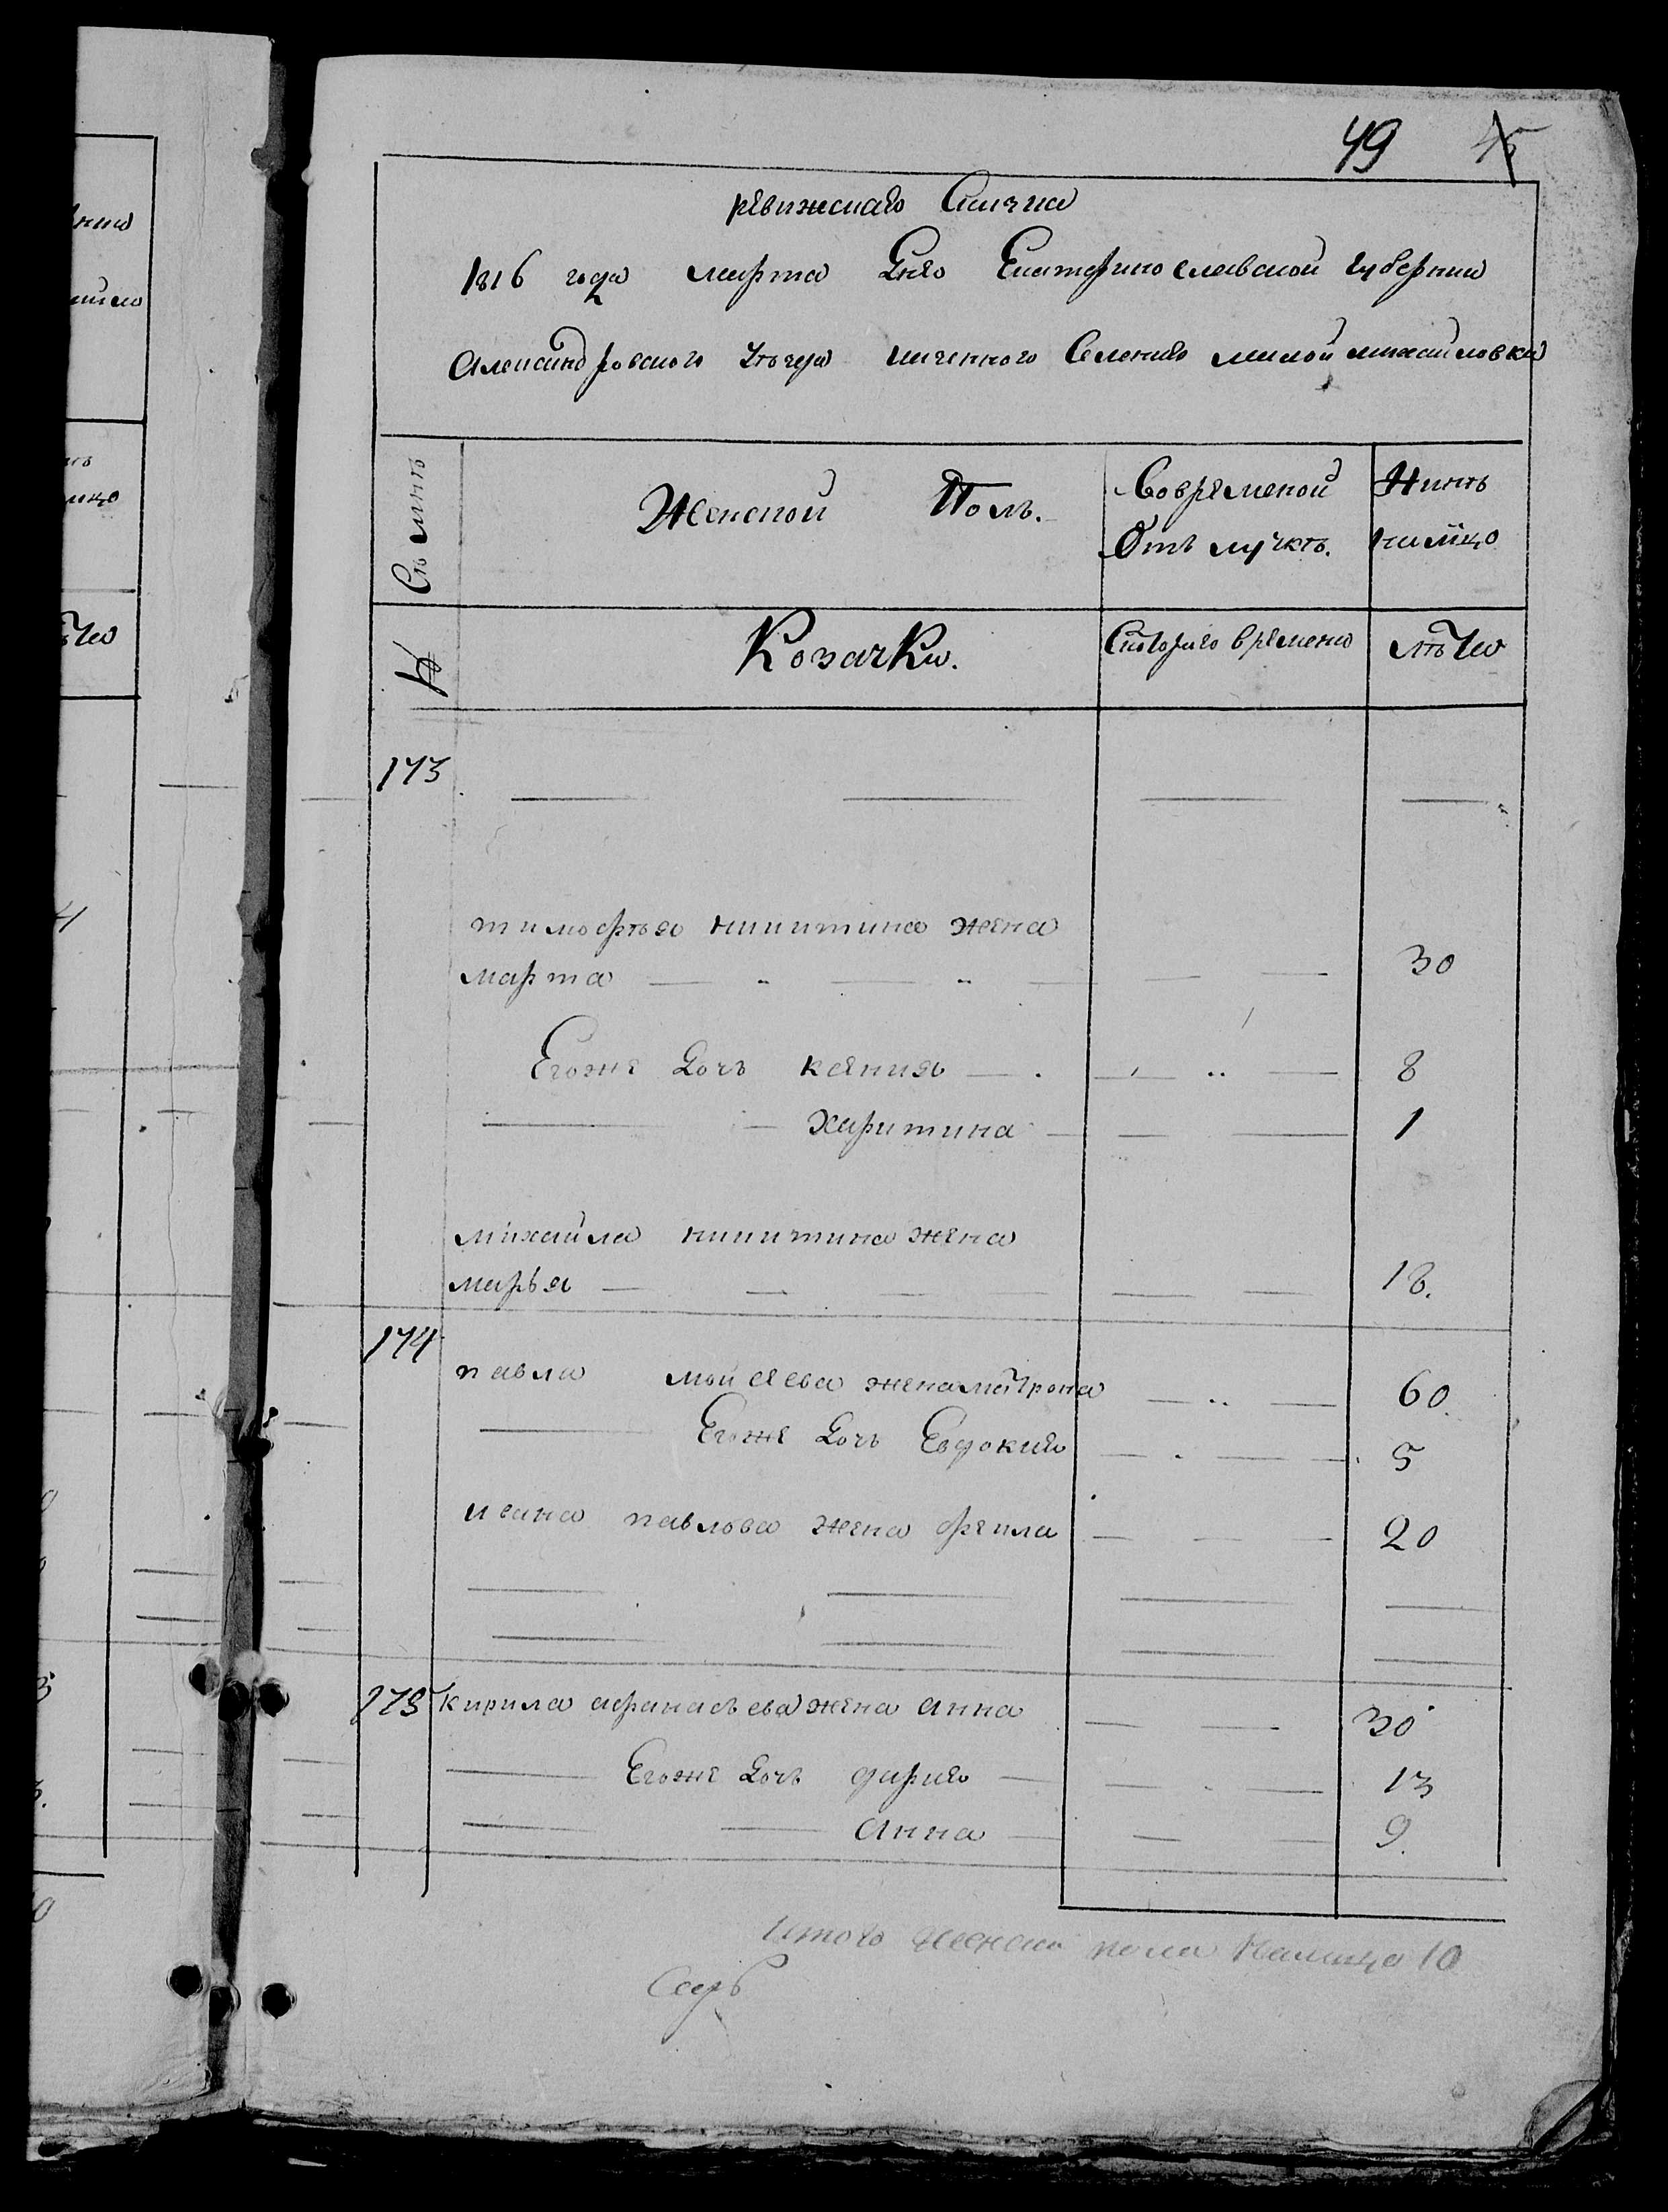 49 45
ревижская Скаска
1816 года марта дня Екатеринославской губернии
Александровского уезда казенного Селения малой михайловки
Семьи
Женской Полъ.
Вовременой
Отъ лучкѣ.
Нинѣ
налицо
№
Козачки.
Скоторого времени
лѣта
173
тимофѣя никитина жена
марта 30
Егоже дочь ксения 8
харитина 1
михаила никитина жена
марья 18.
174
павла мойсеева жена матрона 60.
Егоже дочь Евдокия 5
ивана павлова жена фекла 20
175 кирила афанасьева жена анна 30
Егоже дочь дария 13
анна 9.
Итого женска пола налицо 10